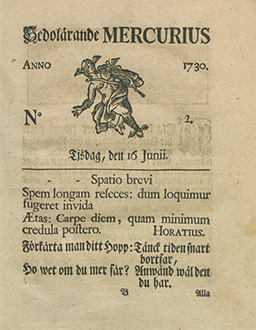 Sedolärande MERCURIUS
ANNO 1730.
N° 2.
Tißdag, den 16 Junii.
- - Spatio brevi
Spem longam reseces: dum loquimur
fugeret invida
Ætas: Carpe diem, quam minimum
credula postero. HORATIUS.
Förkårta man ditt Hopp: Tänck tiden snart
bortfar,
Ho wet om du mer får? Anwänd wäl den
du har.
B Alla